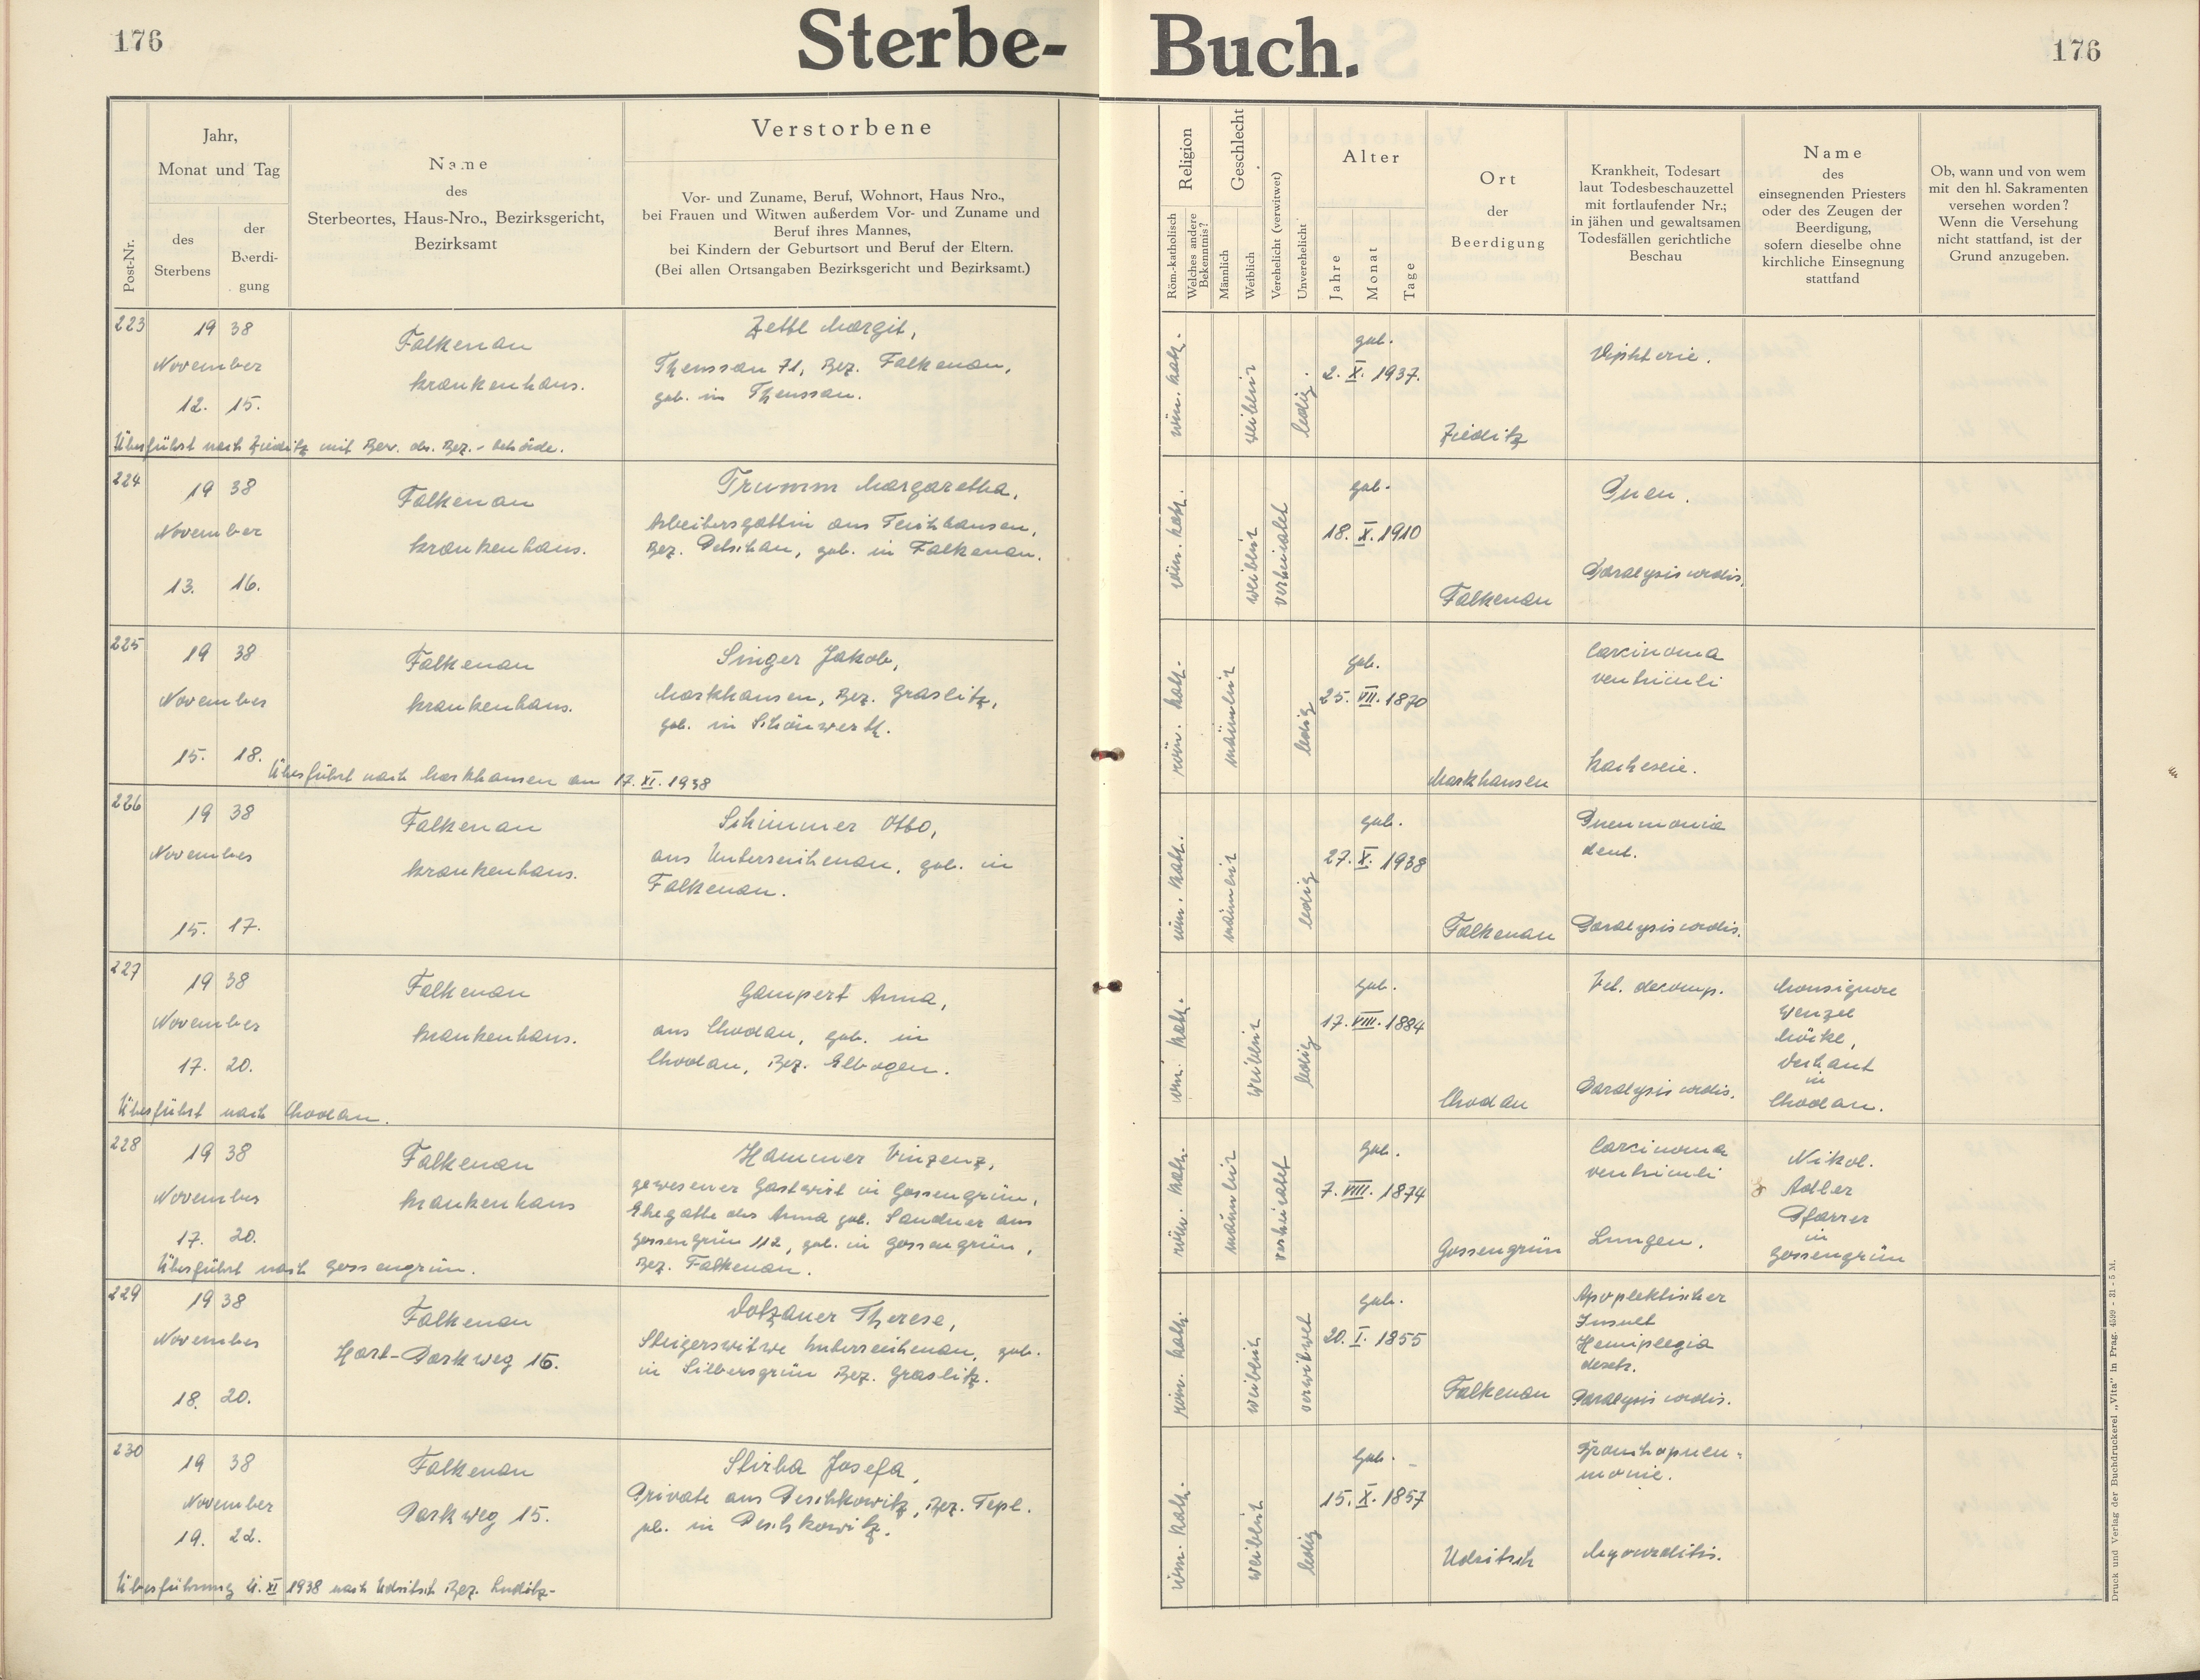 176
Sterbe-
Buch.
176
Post-Nr.
Jahr,
Monat und Tag
des
Sterbens
der
Beerdi-
gung
Name
des
Sterbeortes, Haus-Nro., Bezirksgericht,
Bezirksamt
Verstorbene
Vor- und Zuname, Beruf, Wohnort, Haus Nro.,
bei Frauen und Witwen außerdem Vor- und Zuname und
Beruf ihres Mannes,
bei Kindern der Geburtsort und Beruf der Eltern.
(Bei allen Ortsangaben Bezirksgericht und Bezirksamt.)
Religion
Röm.-katholisch
Welches andere
Bekenntnis?
Geschlecht
Männlich
Weiblich
Verehelicht (verwitwet)
Unverehelicht
Alter
Jahre
Monat
Tage
Ort
der
Beerdigung
Krankheit, Todesart
laut Todesbeschauzettel
mit fortlaufender Nr.;
in jähen und gewaltsamen
Todesfällen gerichtliche
Beschau
Name
des
einsegnenden Priesters
oder des Zeugen der
Beerdigung,
sofern dieselbe ohne
kirchliche Einsegnung
stattfand
Ob, wann und von wem
mit den hl. Sakramenten
versehen worden?
Wenn die Versehung
nicht stattfand, ist der
Grund anzugeben.
223
19 38
November
12. 15.
Falkenau
Krankenhaus.
Zettl Margit,
Theussau 71, Bez. Falkenau,
geb. in Theussau.
Überführt nach Zieditz mit Bew. der Bez.-behörde.
röm. kath.
weiblich
ledig.
geb.
2. X. 1937.
Zieditz
Diphterie.
224
19 38
November
13. 16.
Falkenau
Krankenhaus.
Trumm Margaretha,
Arbeitersgattin aus Teichhäusern,
Bez. Petschau, geb. in Falkenau.
röm. kath.
weiblich
verheiratet
geb.
18. X. 1910
Falkenau
Pneu.
Paralysis cordis.
225
19 38
November
15. 18.
Falkenau
Krankenhaus.
Singer Jakob,
Markhausen, Bez. Graslitz,
geb. in Schönwerth.
Überführt nach Markhausen am 17. XI. 1938
röm. kath.
männlich
ledig
geb.
25. VII. 1870
Markhausen
Carcinoma
ventriculi
Kachexie.
226
19 38
November
15. 17.
Falkenau
Krankenhaus.
Schimmer Otto,
aus Unterreichenau, geb. in
Falkenau.
röm. kath.
männlich
ledig
geb.
27. X. 1938
Falkenau
Pneumonia
Paralysis cordis.
227
19 38
November
17. 20.
Falkenau
Krankenhaus.
Gampert Anna,
aus Chodau, geb. in
Chodau, Bez. Elbogen.
Überführt nach Chodau.
röm. kath.
weiblich
ledig
geb.
17. VIII. 1884
Chodau
Vit. decomp.
Paralysis cordis.
Monsignore
Wenzel
Dechant
in
Chodau.
228
19 38
November
17. 20.
Falkenau
Krankenhaus
Hammer Vinzenz,
gewesener Gastwirt in Gossengrün,
Ehegatte der Anna geb. Sandner aus
Gossengrün 112, geb. in Gossengrün,
Bez. Falkenau.
Überführt nach Gossengrün.
röm. kath.
männlich
verheiratet
geb.
7. VIII. 1874
Gossengrün
Carcinoma
ventriculi
Lungen.
Nikol.
Adler
Pfarrer
in
Gossengrün
229
19 38
November
18. 20.
Falkenau
Hart-Parkweg 16.
Dotzauer Therese,
Steigerswitwe Unterreichenau, geb.
in Silbersgrün Bez. Graslitz.
röm. kath.
weiblich
verwitwet
geb.
20. I. 1855
Falkenau
Apoplektischer
Insult
Hemiplegia
Paralysis cordis.
230
19 38
November
19. 22.
Falkenau
Parkweg 15.
Stirba Josefa,
Private aus Peschkowitz, Bez. Tepl.
geb. in Peschkowitz.
XI 1938 nach Udritsch Bez. Luditz-
röm. kath.
weiblich
ledig
geb.
15. X. 1857
Udritsch
Bronchopneu-
monie.
Myocarditis.
Druck und Verlag der Buchdruckerei „Vita" in Prag. 4599 - 31 - 5 M.